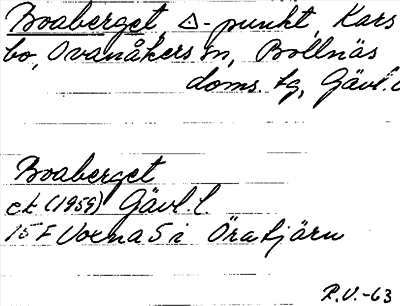 Boaberget, △-punkt, Kars
bo, Ovanåkers sn, Bollnäs
doms. tg, Gävl.
Boaberget
ek (1959) Gävl. l.
15 F Voxna 5 i Öratjärn
R.V.-63